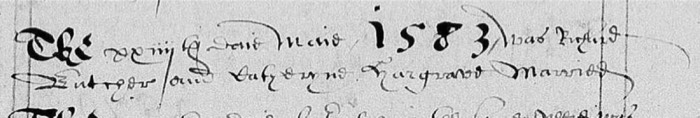 The xxiiijth daie Maie, 1583, was Richard
Butcher and Katheryne Hargrave Married
The